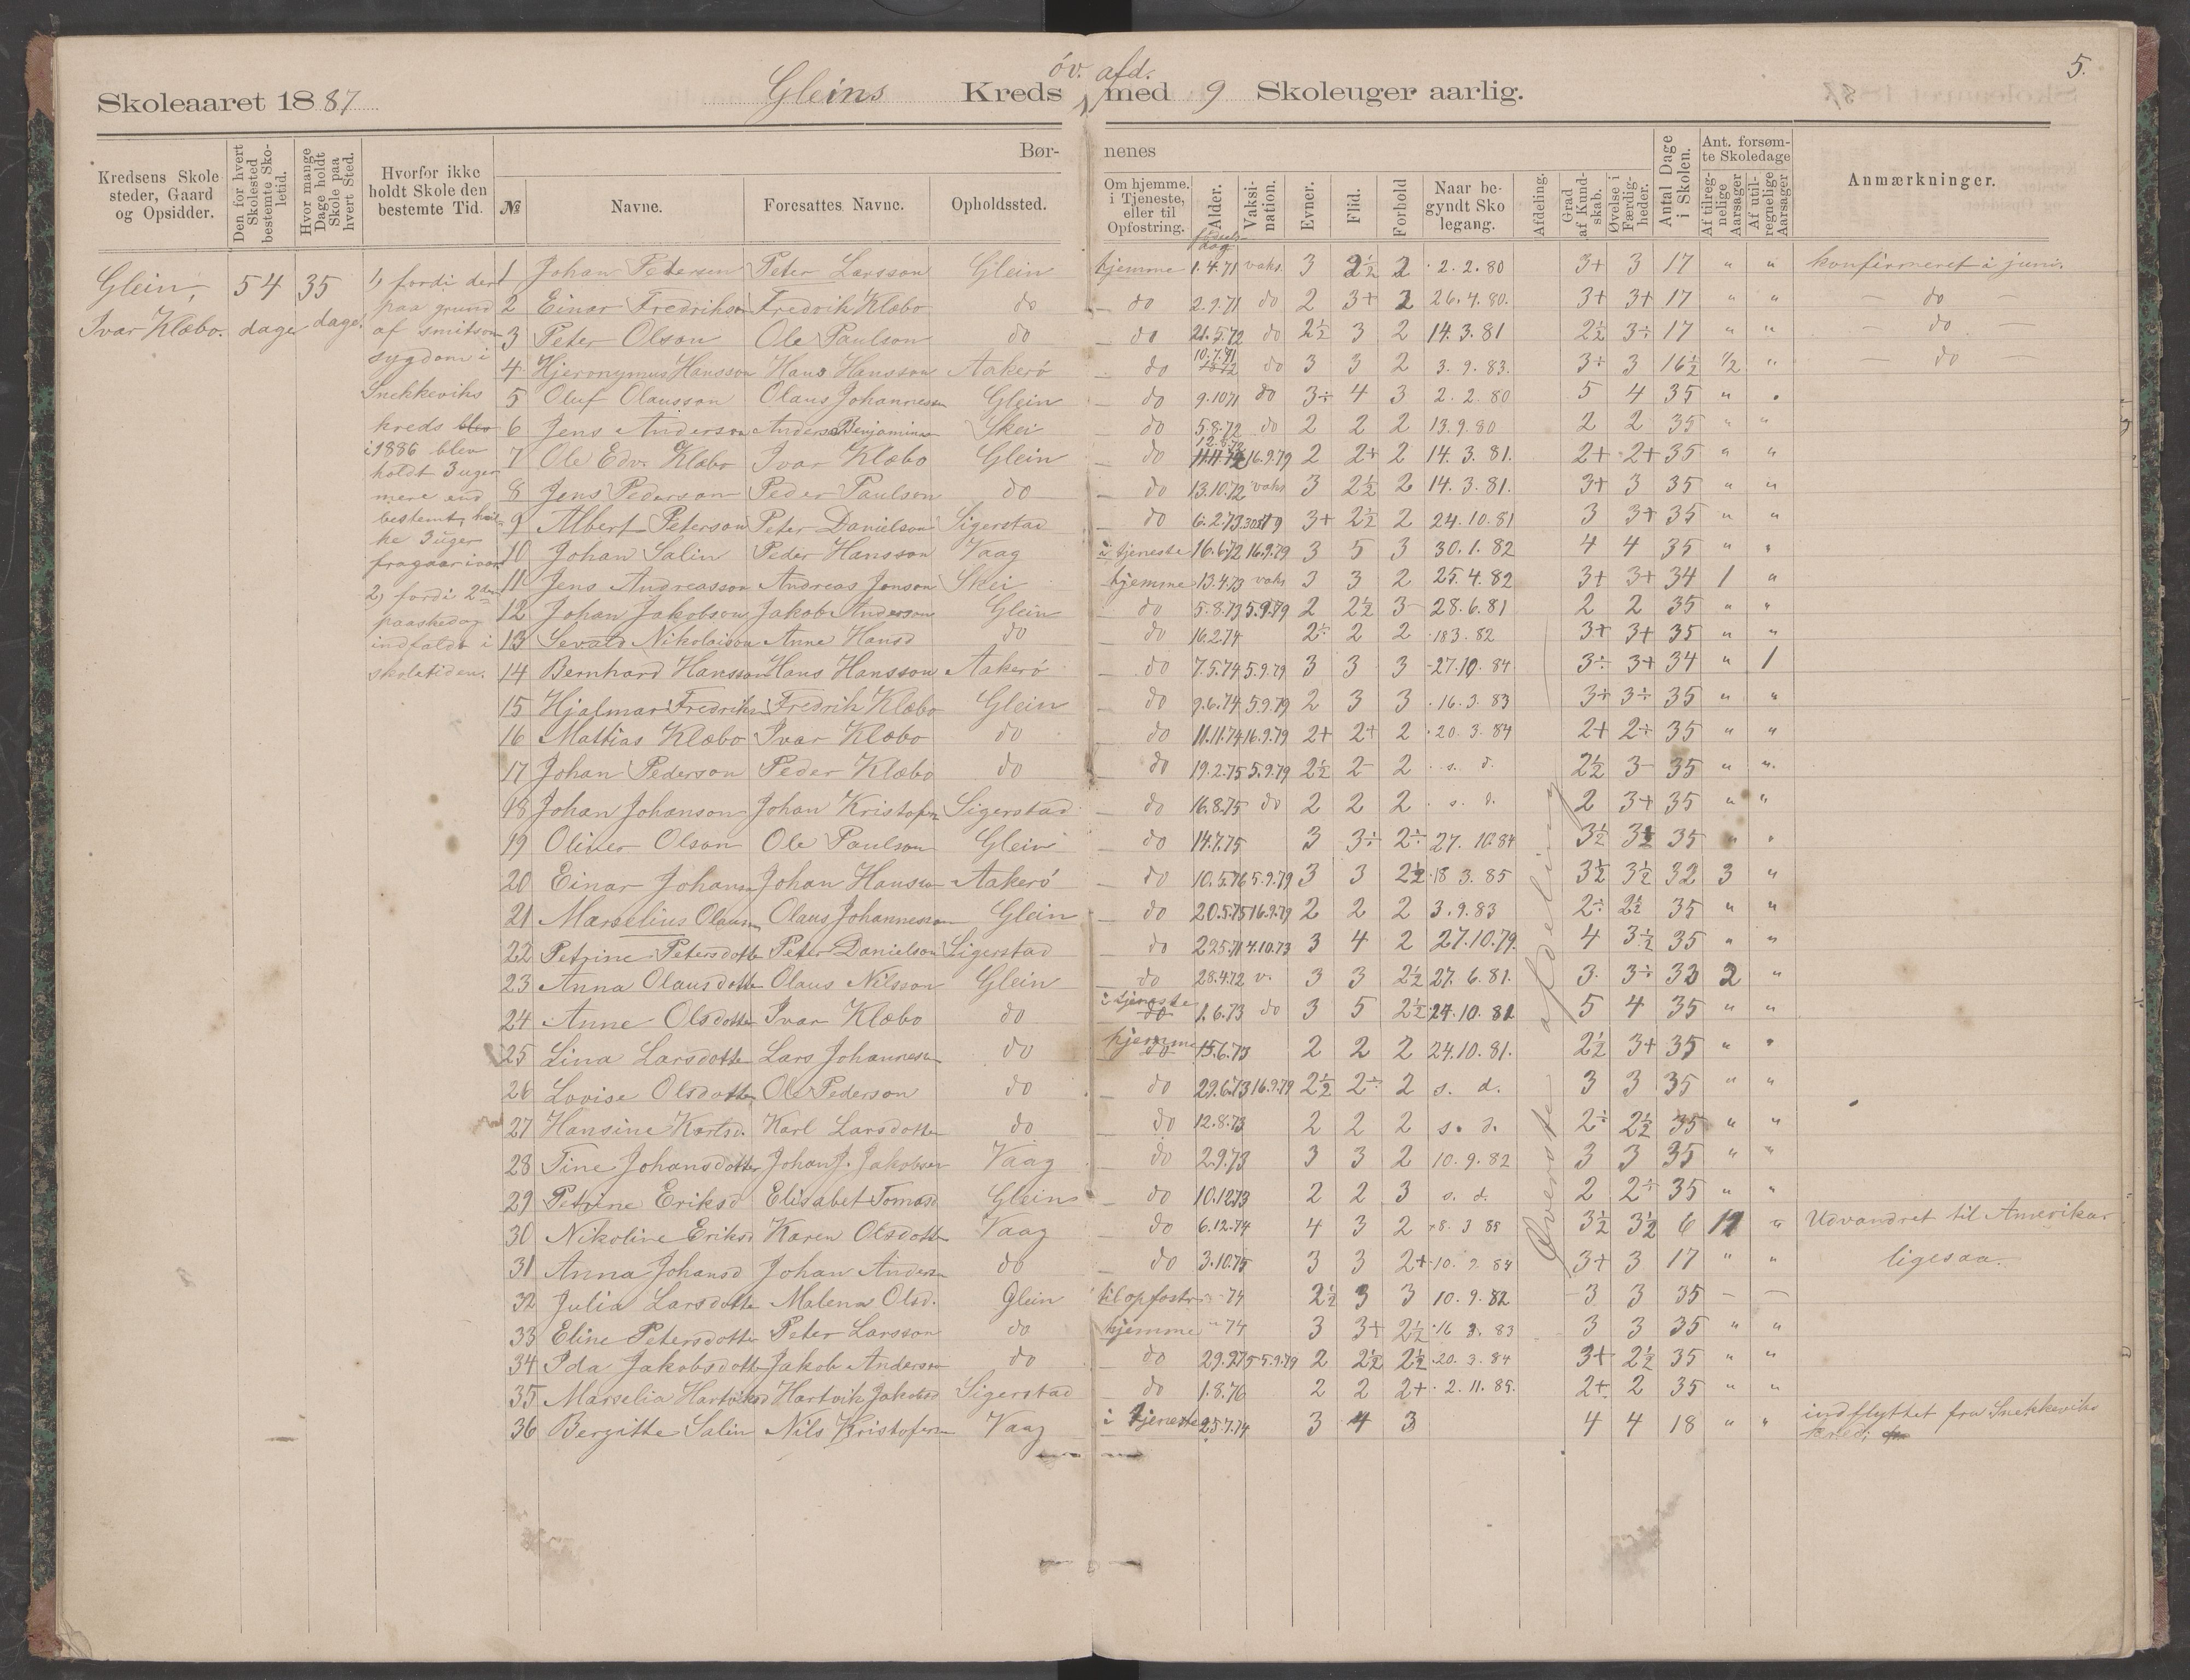 5.
öv. afd.
Skoleaaret 1887 Gleins Kreds med 9 Skoleuger aarlig.
Kredsens Skole steder, Gaard og Opsidder. Den for hvert Skolested bestemte Skoletid. Hvor mange Dage holdt Skole paa hvert Sted. Hvorfor ikke holdt Skole den bestemte Tid. Børnenes Antal Dage i Skolen. Ant. forsømte Skoledage Anmærkninger.
№ Navne. Foresattes Navne. Opholdssted. Om hjemme. i Tjeneste, eller til Opfostring. Alder. Vaksination. Evner. Flid. Forhold Naar begyndt Skolegang. Afdeling. Grad af Kundskab. Øvelse i Færdigheder. Af tilregnelige Aarsager Af utilregnelige Aarsager
fødselsdag
Glein, Ivar Klæbo. 54 dage 35 dage.
1, fordi der
paa grund
af smitsom
sygdom i
Snekkeviks
kreds blev
i 1886 blev
holdt 3 uger
mere end
bestemt, hvil-
ke 3 uger
fragaar ivaar
2, fordi 2den
paaskedag
indfaldt i
skoletiden.
1 Johan Petersen Peter Larsson Glein hjemme 1.4.71 vaks. 3 2½ 2 2.2.80 3+ 3 17 " " konfirmeret i juni.
2 Einar Fredrikson Fredrik Klæbo do do 2.9.71 do 2 3+ 2 26.4.80. 3+ 3+ 17 " " do
3 Peter Olson Ole Paulson do do 21.5.72 do 2½ 3 2 14.3.81 2½ 3÷ 17 " " do
4 Hjeronymus Hansson Hans Hansson Aakerö do 10.7.71 do 3 3 2 3.9.83. 3÷ 3 16½ ½ " do
5 Oluf Olausson Olaus Johannesen Glein do 9.10 71 do 3÷ 4 3 2.2.80 5 4 35 " "
6 Jens Anderson Anders Benjaminsen Skei do 5.8.72 do 2 2 2 13.9.80 2 2 35 " "
7 Ole Edv. Klæbo Ivar Klæbo Glein do 12.8.72 16.9.79 2 2+ 2 14.3.81. 2+ 2+ 35 " "
8 Jens Pederson Peder Paulson do do 13.10.72 vaks 3 2½ 2 14.3.81. 3+ 3 35 " "
9 Albert Peterson Peter Danielson Sigerstad do 6.2.73 3+ 2½ 2 24.10.81 3 3+ 35 " "
10 Johan Salin Peder Hansson Vaag i tjeneste 16.6.72 16.9.79 3 5 3 30.1.82 4 4 35 " "
11 Jens Andreasson Andreas Jonson Skei hjemme 13.4.73 vaks 3 3 2 25.4.82 3+ 3+ 34 1 "
12 Johan Jakobson Jakob Anderson Glein do 5.8.73 5.9.79 2 2½ 3 28.6.81 2 2 35 " "
13 Sevald Nikolaison Anne Hansd do do 16.2.74 2÷ 2 2 18 3.82 3+ 3+ 35 " "
14 Bernhard Hansson Hans Hansson Aakerö do 7.5.74 5.9.79 3 3 3 27.10.84 3÷ 3+ 34 " 1
15 Hjalmar Fredriksen Fredrik Klæbo Glein do 9.6.74 5.9.79 2 3 3 16.3.83 3÷ 3÷ 35 " "
16 Mattias Klæbo Ivar Klæbo do do 11.11.74 16.9.79 2+ 2+ 2 20.3.84 2+ 2÷ 35 " "
17 Johan Pederson Peder Klæbo do do 19.2.75 5.9.79 2½ 2 2 s. d. 2½ 3 35 " "
18 Johan Johanson Johan Kristofersen Sigerstad do 16.8.75 do 2 2 2 s. d. 2 3+ 35 " "
19 Oliver Olson Ole Paulson Glein do 14.7.75 3 3÷ 2÷ 27.10.84 3½ 3½ 35 " "
20 Einar Johansen Johan Hansson Aakerö do 10.5.76 5.9.79 3 3 2½ 18 3.85 3½ 3½ 32 3 "
21 Marselius Olausen Olaus Johannesson Glein do 20.5.75 16.9.79 2 2 2 3.9.83 2÷ 2½ 35 " "
22 Petrine Petersdotter Peter Danielson Sigerstad do 22 5.71 4.10.73 3 4 2 27.10.79. 4 3½ 35 " "
23 Anna Olausdotter Olaus Nilsson Glein do 28.4.72 v. 3 3 2½ 27.6.81. 3 3÷ 33 2 "
24 Anne Olsdotter Ivar Klæbo do i tjeneste 1.6.73 do 3 5 2½ 24.10.81 5 4 35 " "
25 Lina Larsdotter Lars Johannesen do hjemme 15.6.73 2 2 2 24.10.81. 2½ 3+ 35 " "
26 Lovise Olsdotter Ole Pederson do do 29.6.73 16.9.79 2½ 2÷ 2 s. d. 3 3 35 " "
27 Hansine Karlsd. Karl Larsdotter do do 12.8.73 2 2 2 s. d. 2÷ 2½ 35 " "
28 Tine Johansdotter Johan J. Jakobsen Vaag do 2.9.73 3 3 2 10.9.82 3 3 35 " "
29 Petrine Eriksd Elisabet Tomasd Glein do 10.12.73 2 2 3 s. d. 2 2÷ 35 " "
30 Nikoline Eriksd Karen Olsdotter Vaag do 6.12.74 4 3 2 18.3 85 3½ 3½ 6 12 " Udvandret til Amerika
31 Anna Johansd Johan Anderson do do 3.10.75 3 3 2+ 10.9.84 3+ 3 17 " " ligesaa.
32 Julia Larsdotter Malena Olsd. Glein til opfostr 74 2½ 3 3 10.9.82 3 3 35 — —
33 Eline Petersdotter Peter Larsson do hjemme " 74 3 3+ 2½ 16 3.83 3 3 35 " "
34 Ida Jakobsdotter Jakob Anderson do do 29.9.75 5.9.79 2 2½ 2½ 20.3.84 3+ 2½ 35 " "
35 Marselia Hartviksd Hartvik Jakobsd Sigerstad do 1.8.76 2 2 2+ 2.11.85. 2+ 2 35 " "
36 Bergitte Salin Nils Kristofersen Vaag i tjeneste 25.7.74 3 4 3 4 4 18 " " indflyttet fra Snekkeviks kreds
Øverste afdeling